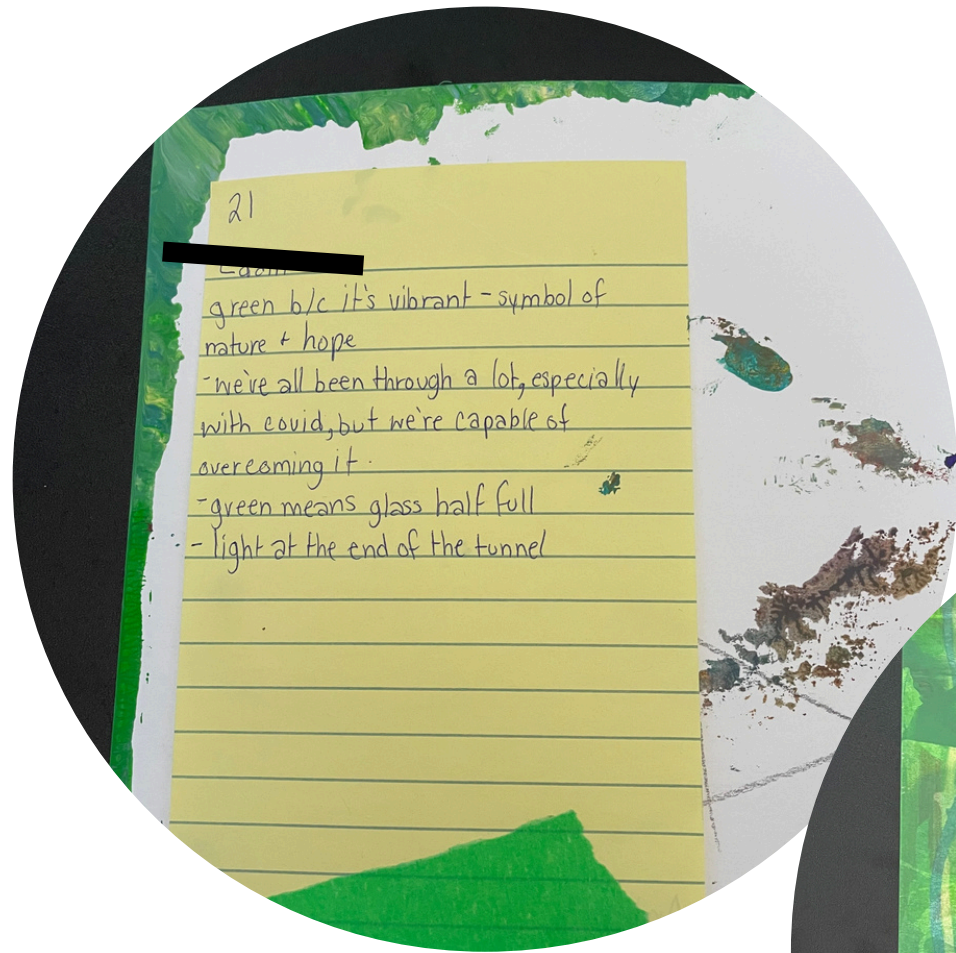 21
green b/c it's vibrant - symbol of
nature + hope
- we've all been through a lot, especially
with covid, but we're capable of
overcoming it.
- green means glass half full
- light at the end of the tunnel